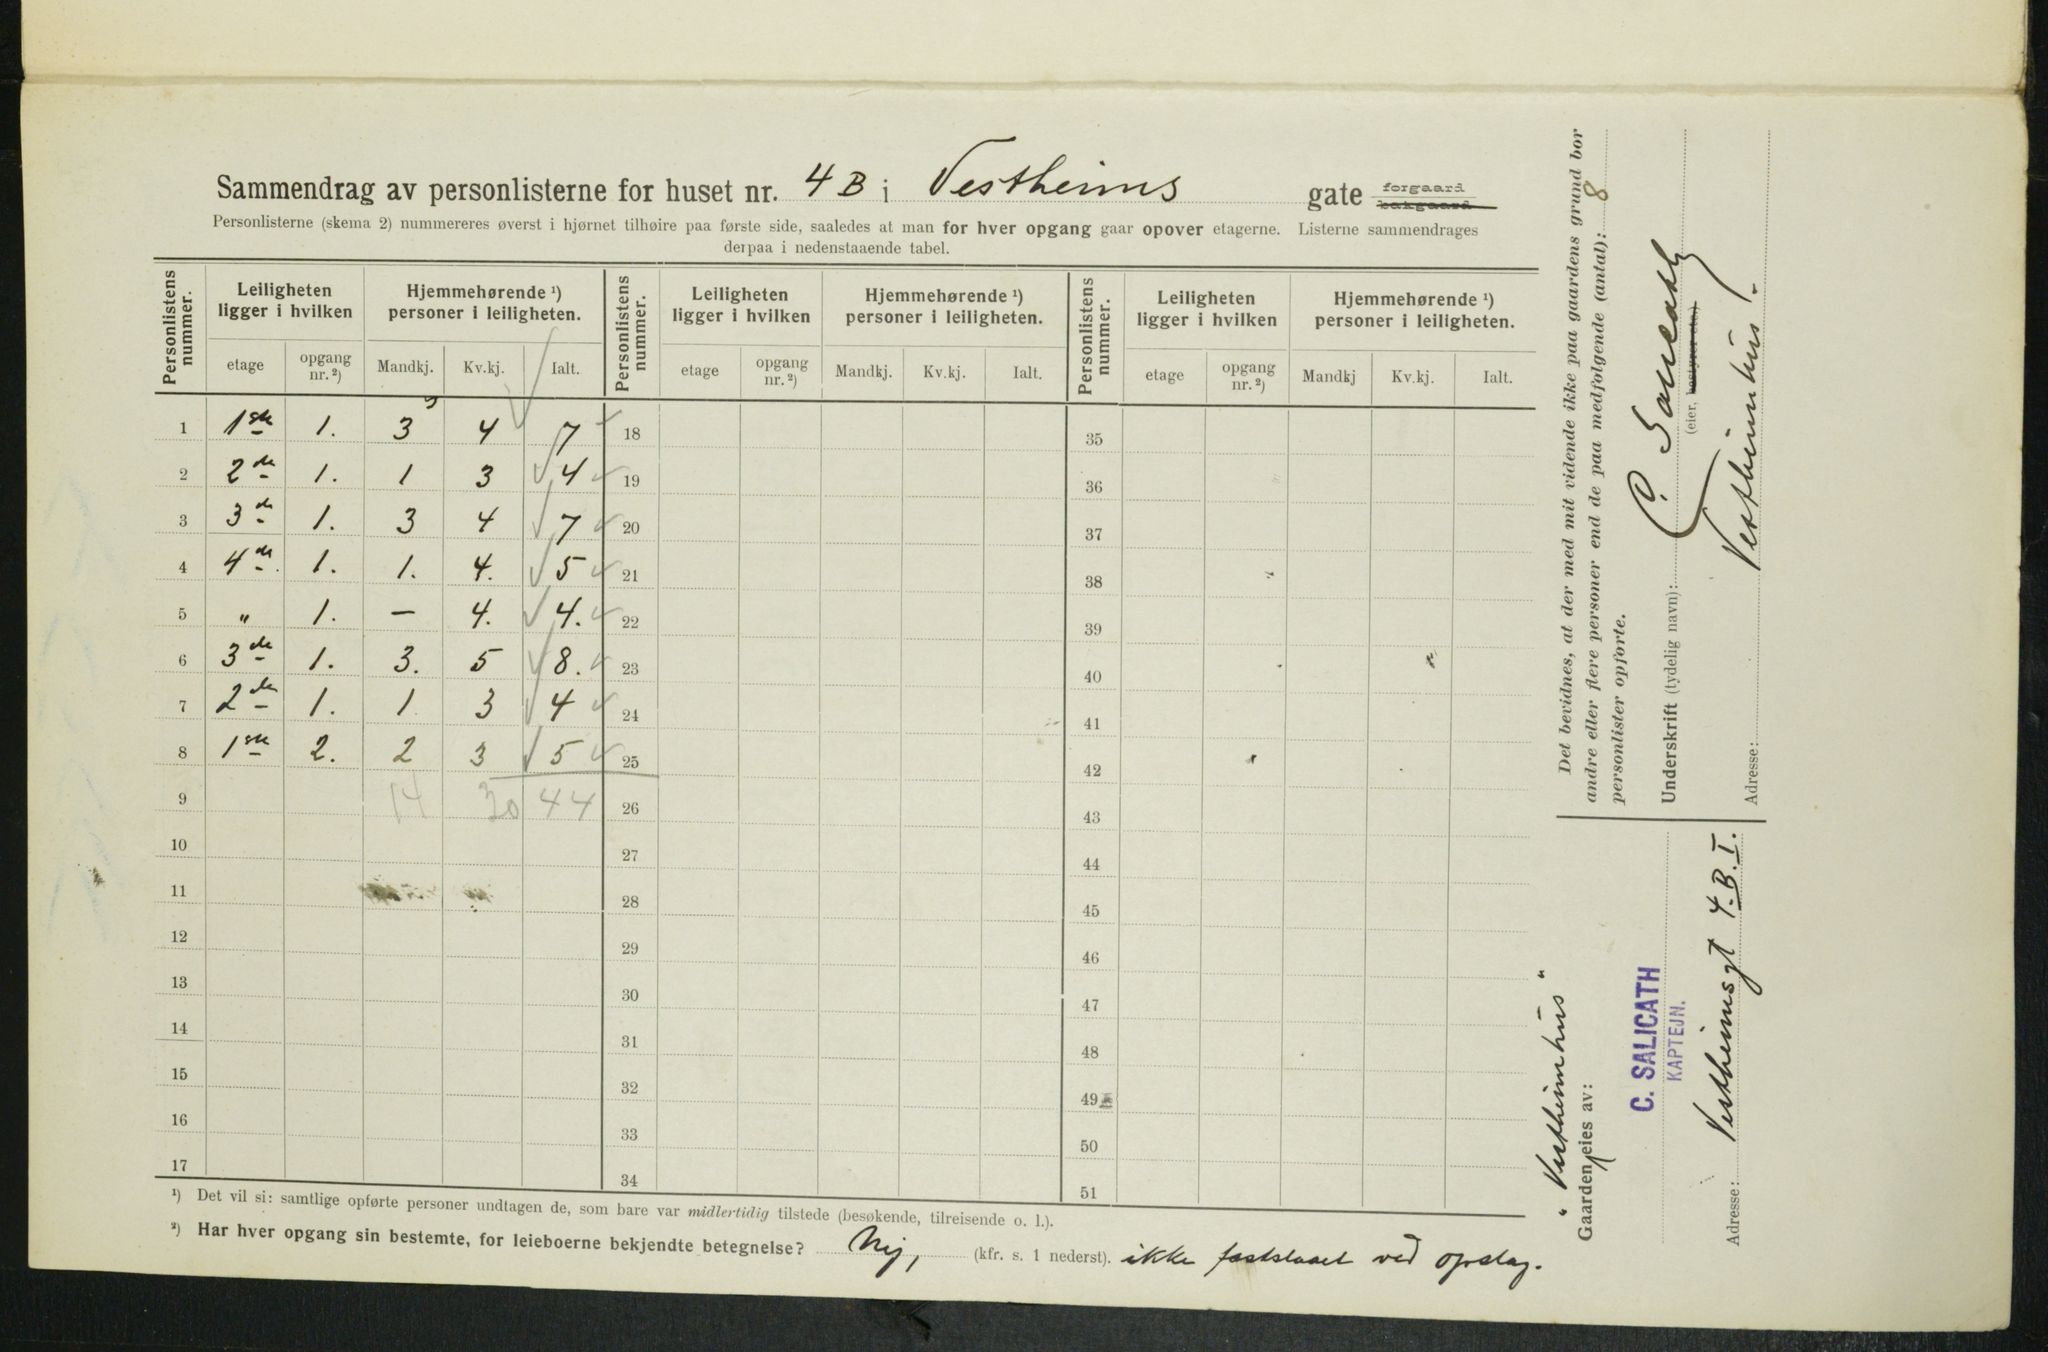 Sammendrag av personlisterne for huset nr. 4 B i Vestheims gate forgaard bakgaard
Personlisterne (skema 2) nummereres øverst i hjørnet tilhøire paa første side, saaledes at man for hver opgang gaar opover etagerne. Listerne sammendrages
derpaa i nedenstaaende tabel.
Personlistens nummer. Leiligheten ligger i hvilken Hjemmehørende ¹) personer i leiligheten. Personlistens nummer. Leiligheten ligger i hvilken Hjemmehørende ¹) personer i leiligheten. Personlistens nummer. Leiligheten ligger i hvilken Hjemmehørende ¹) personer i leiligheten.
etage opgang nr. ²) Mandkj. Kv.kj. Ialt. etage opgang nr. ²) Mandkj. Kv.kj. Ialt. etage opgang nr. ²) Mandkj Kv.kj. Ialt.
1 1ste 1. 3 4 7 18 35
2 2de 1. 1 3 4 19 36
3 3de 1. 3 4 7 20 37
4 4de 1. 1. 4. 5 21 38
5 " 1. — 4. 4. 22 39
6 3de 1. 3. 5 8. 23 40
7 2de 1. 1 3 4 24 41
8 1ste 2. 2 3 5 25 42
9 14 30 44 26 43
10 27 44
11 28 45
12 29 46
13 30 47
14 31 48
15 32 49
16 33 50
17 34 51
¹) Det vil si: samtlige opførte personer undtagen de, som bare var midlertidig tilstede (besøkende, tilreisende o. l.).
²) Har hver opgang sin bestemte, for leieboerne bekjendte betegnelse? Nej, (kfr. s. 1 nederst). ikke fastslaaet ved opslag.
Det bevidnes, at der med mit vidende ikke paa gaardens grund bor
andre eller flere personer end de paa medfølgende (antal): 8
personlister opførte.
Underskrift (tydelig navn): C. Salicath
(eier, bestyrer etc.)
Adresse: Vestheimhus.
"Vestheimhus"
Gaarden eies av:
C. SALICATH
KAPTEJN.
Adresse: Vestheimsgt 4.B.I.